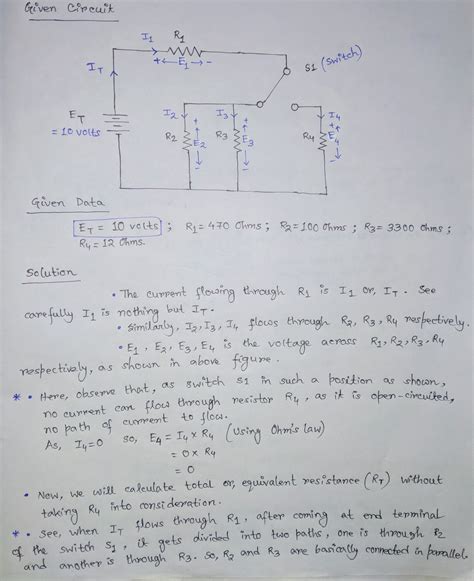 Given Circuit
I1 R1
+ ← E1 → -
S1 (Switch)
IT
ET
= 10 volts
I2 I3 I4
R2 + E2 - R3 + E3 - R4 + E4 -
Given Data
ET = 10 volts ; R1 = 470 Ohms ; R2 = 100 Ohms ; R3 = 3300 Ohms ;
R4 = 12 Ohms.
Solution
• The current flowing through R1 is I1 or, IT. See
carefully I1 is nothing but IT.
• Similarly, I2, I3, I4 flows through R2, R3, R4 respectively.
• E1, E2, E3, E4 is the voltage across R1, R2, R3, R4
respectively, as shown in above figure.
* • Here, observe that, as switch S1 in such a position as shown,
no current can flow through resistor R4, as it is open-circuited,
no path of current to flow.
As, I4 = 0 so, E4 = I4 × R4 (Using Ohm's law)
= 0 × R4
= 0
• Now, we will calculate total or, equivalent resistance (RT) without
taking R4 into consideration.
* • See, when IT flows through R1, after coming at end terminal
of the switch S1, it gets divided into two paths, one is through R2
and another is through R3. So, R2 and R3 are basically connected in parallel.